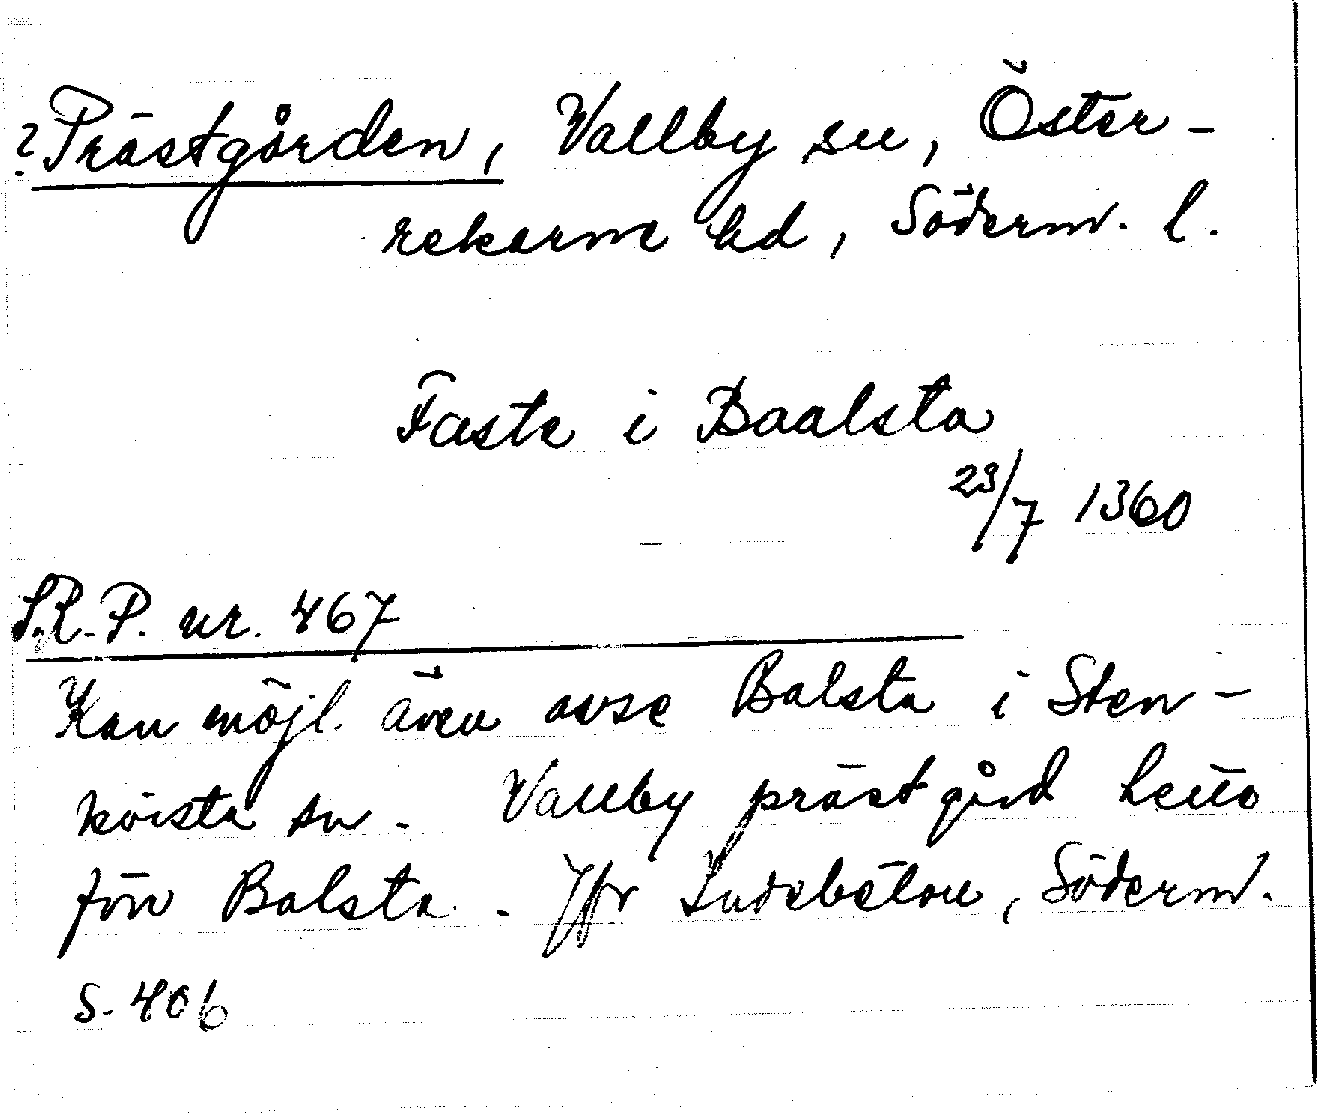 ? Prästgården, Vallby sn, Öster-
rekarne hd, Söderm. l.
Faste i Baalsta
23/7 1360
S.R.P. nr. 467
Kan möjl. även avse Balsta i Sten-
kvista sn. Vallby prästgård hette
förr Balsta. Jfr Indebetou, Söderm.
s. 406